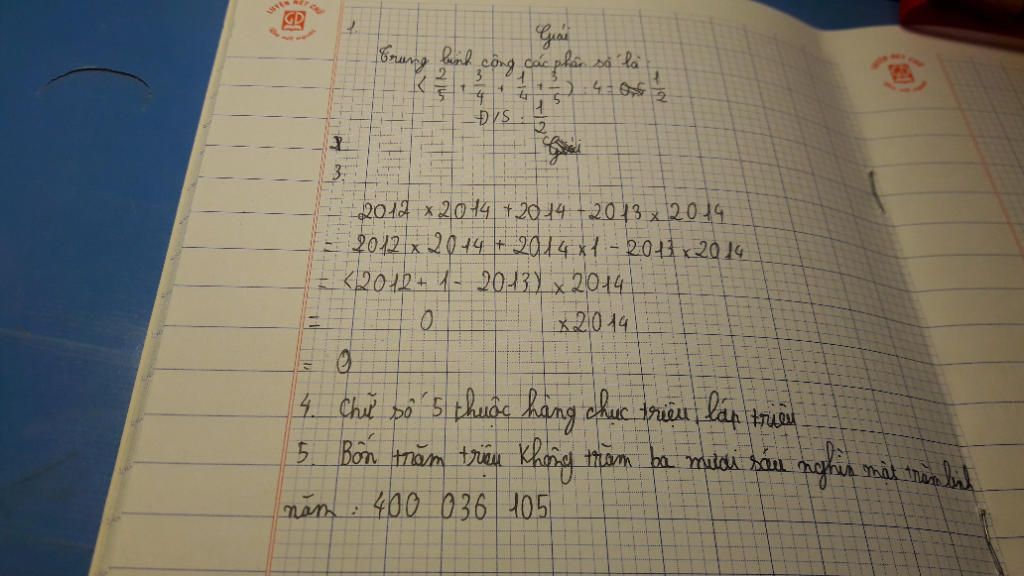 LUYỆN NÉT CHỮ
GD
1.
Giải
Trung bình cộng các phân số là:
(2/5 + 3/4 + 1/4 + 3/5) : 4 = 1/2
Đ/S : 1/2
3.
2012 × 2014 + 2014 - 2013 × 2014
= 2012 × 2014 + 2014 × 1 - 2013 × 2014
= (2012 + 1 - 2013) × 2014
= 0 × 2014
= 0
4. Chữ số 5 thuộc hàng chục triệu, lớp triệu
5. Bốn trăm triệu không trăm ba mươi sáu nghìn một trăm linh
năm : 400 036 105